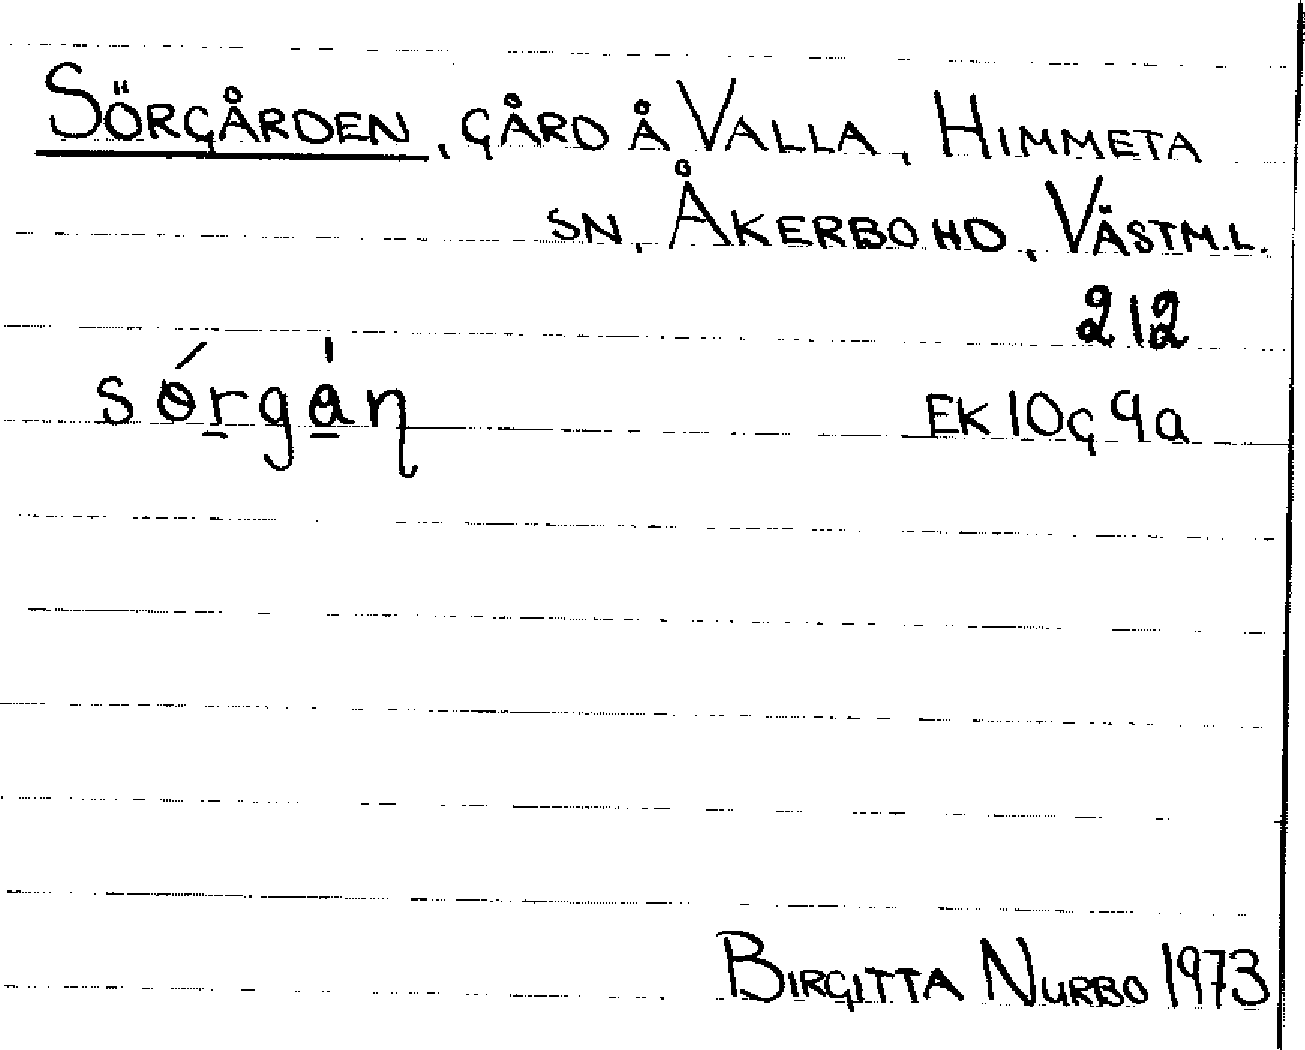 SÖRGÅRDEN, GÅRD Å VALLA, HIMMETA
SN, ÅKERBO HD, VÄSTM.L.
212
sɵ́r̠gå̠̍ɳ EK 10G 9a
BIRGITTA NURBO 1973